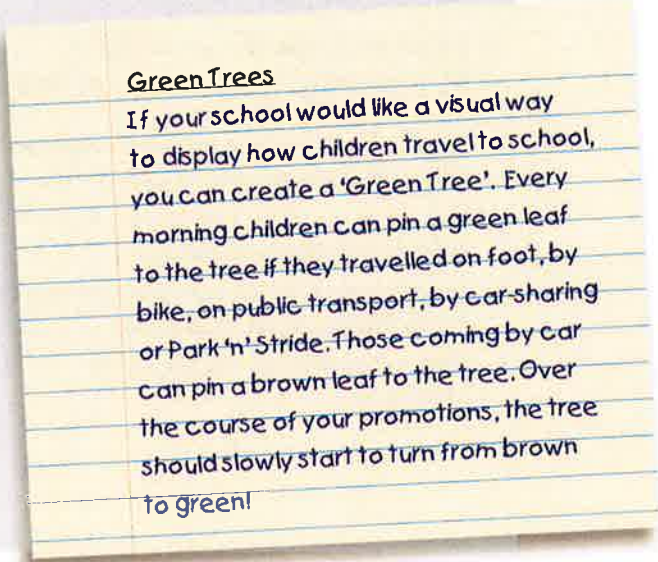 Green Trees
If your school would like a visual way
to display how children travel to school,
you can create a 'Green Tree'. Every
morning children can pin a green leaf
to the tree if they travelled on foot, by
bike, on public transport, by car-sharing
or Park 'n' Stride. Those coming by car
can pin a brown leaf to the tree. Over
the course of your promotions, the tree
should slowly start to turn from brown
to green!